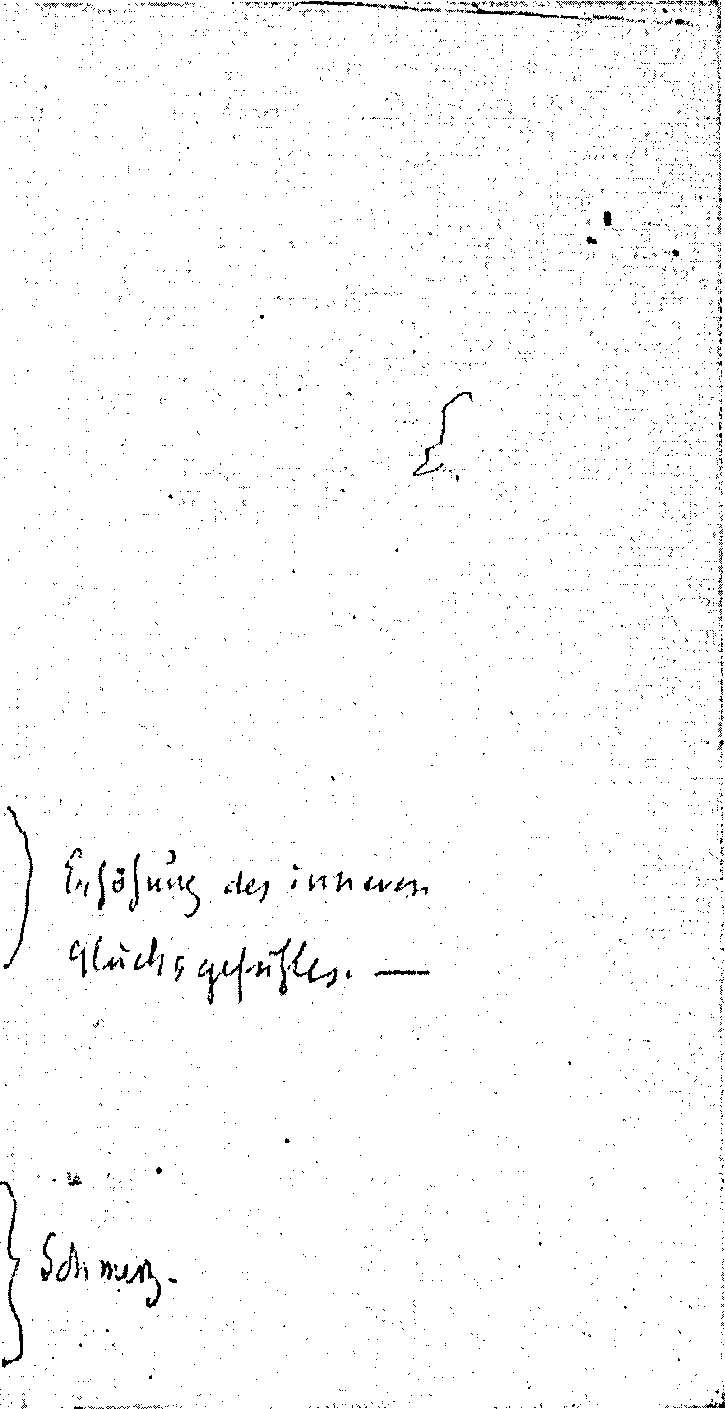 Erhöhung des inneren
Glücksgefühles. —
Schmerz.